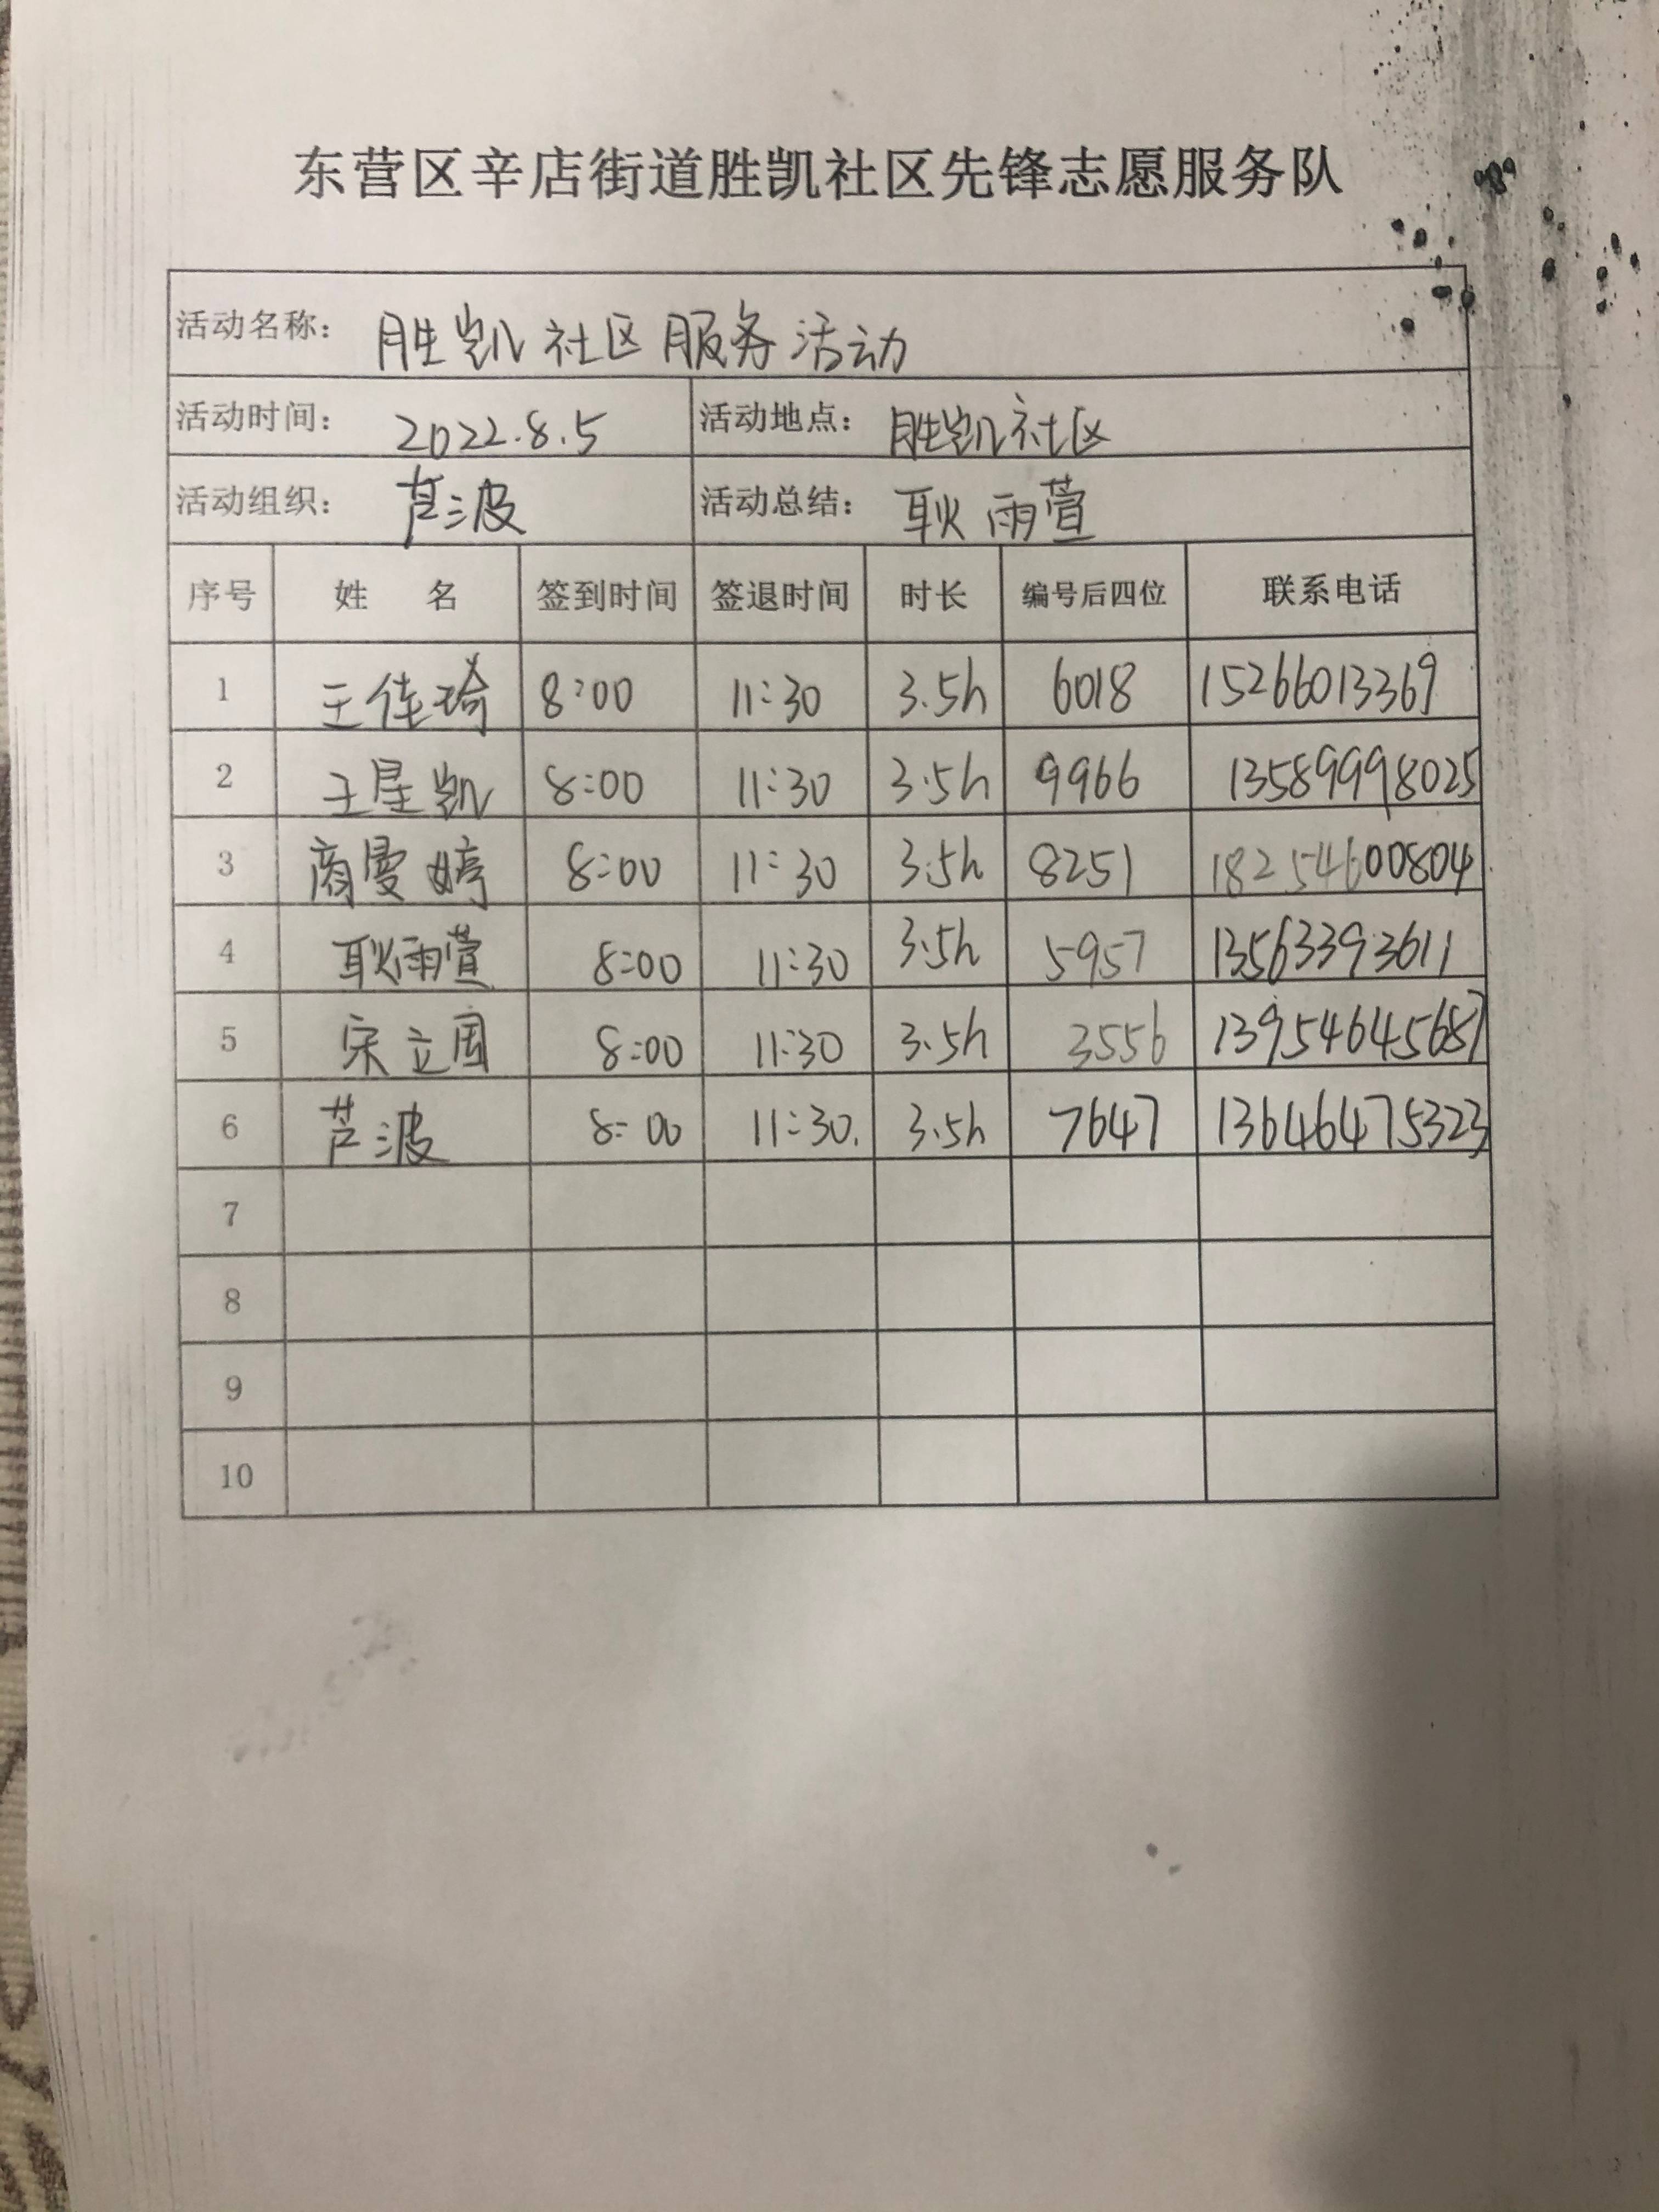 东营区辛店街道胜凯社区先锋志愿服务队
活动名称： 胜凯社区服务活动
活动时间： 2022.8.5 活动地点： 胜凯社区
活动组织： 芦波 活动总结： 耿雨萱
序号 姓 名 签到时间 签退时间 时长 编号后四位 联系电话
1 王佳琦 8:00 11:30 3.5h 6018 15266013369
2 王星凯 8:00 11:30 3.5h 9966 13589998025
3 商曼婷 8:00 11:30 3.5h 8251 18254600804
4 耿雨萱 8:00 11:30 3.5h 5957 13563393611
5 宋立国 8:00 11:30 3.5h 3556 13954645687
6 芦波 8:00 11:30. 3.5h 7647 13646475323
7
8
9
10